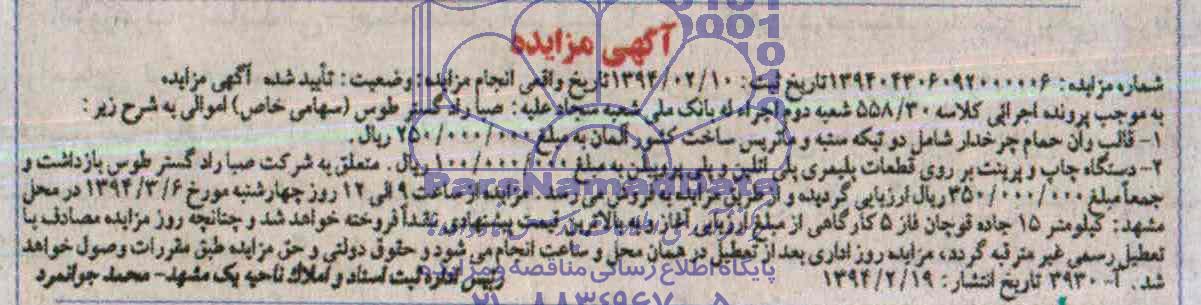 آگهی مزایده
شماره مزایده: ۱۳۹۴۰۴۳۰۶۰۹۲۰۰۰۰۰۶ تاریخ ثبت: ۱۳۹۴/۰۲/۱۰ تاریخ واقعی انجام مزایده: وضعیت: تأیید شده آگهی مزایده
به موجب پرونده اجرائی کلاسه ۵۵۸/۳۰ شعبه دوم اجراء له بانک ملی شعبه سجاد علیه: صبا راد گستر طوس (سهامی خاص) اموالی به شرح زیر:
۱- قالب وان حمام چرخدار شامل دو تیکه سنبه و ماتریس ساخت کشور آلمان به مبلغ ۲۵۰/۰۰۰/۰۰۰ ریال.
۲- دستگاه چاپ و پرینت بر روی قطعات پلیمری پلی اتلین و پلی پروپیلن به مبلغ ۱۰۰/۰۰۰/۰۰۰ ریال. متعلق به شرکت صبا راد گستر طوس بازداشت و
جمعاً مبلغ ۳۵۰/۰۰۰/۰۰۰ ریال ارزیابی گردیده و از طریق مزایده به فروش می رسد. مزایده از ساعت ۹ الی ۱۲ روز چهارشنبه مورخ ۱۳۹۴/۳/۶ در محل
مشهد: کیلومتر ۱۵ جاده قوچان فاز ۵ کارگاهی از مبلغ ارزیابی آغاز و به بالاترین قیمت پیشنهادی نقداً فروخته خواهد شد و چنانچه روز مزایده مصادف با
تعطیل رسمی غیر مترقبه گردد، مزایده روز اداری بعد از تعطیل در همان محل و ساعت انجام می شود و حقوق دولتی و حق مزایده طبق مقررات وصول خواهد
شد. آ-۳۹۳۰ تاریخ انتشار: ۱۳۹۴/۲/۱۹ رئیس اداره ثبت اسناد و املاک ناحیه یک مشهد- محمد جوانمرد
ParsNamadData
پایگاه اطلاع رسانی مناقصه و مزایده